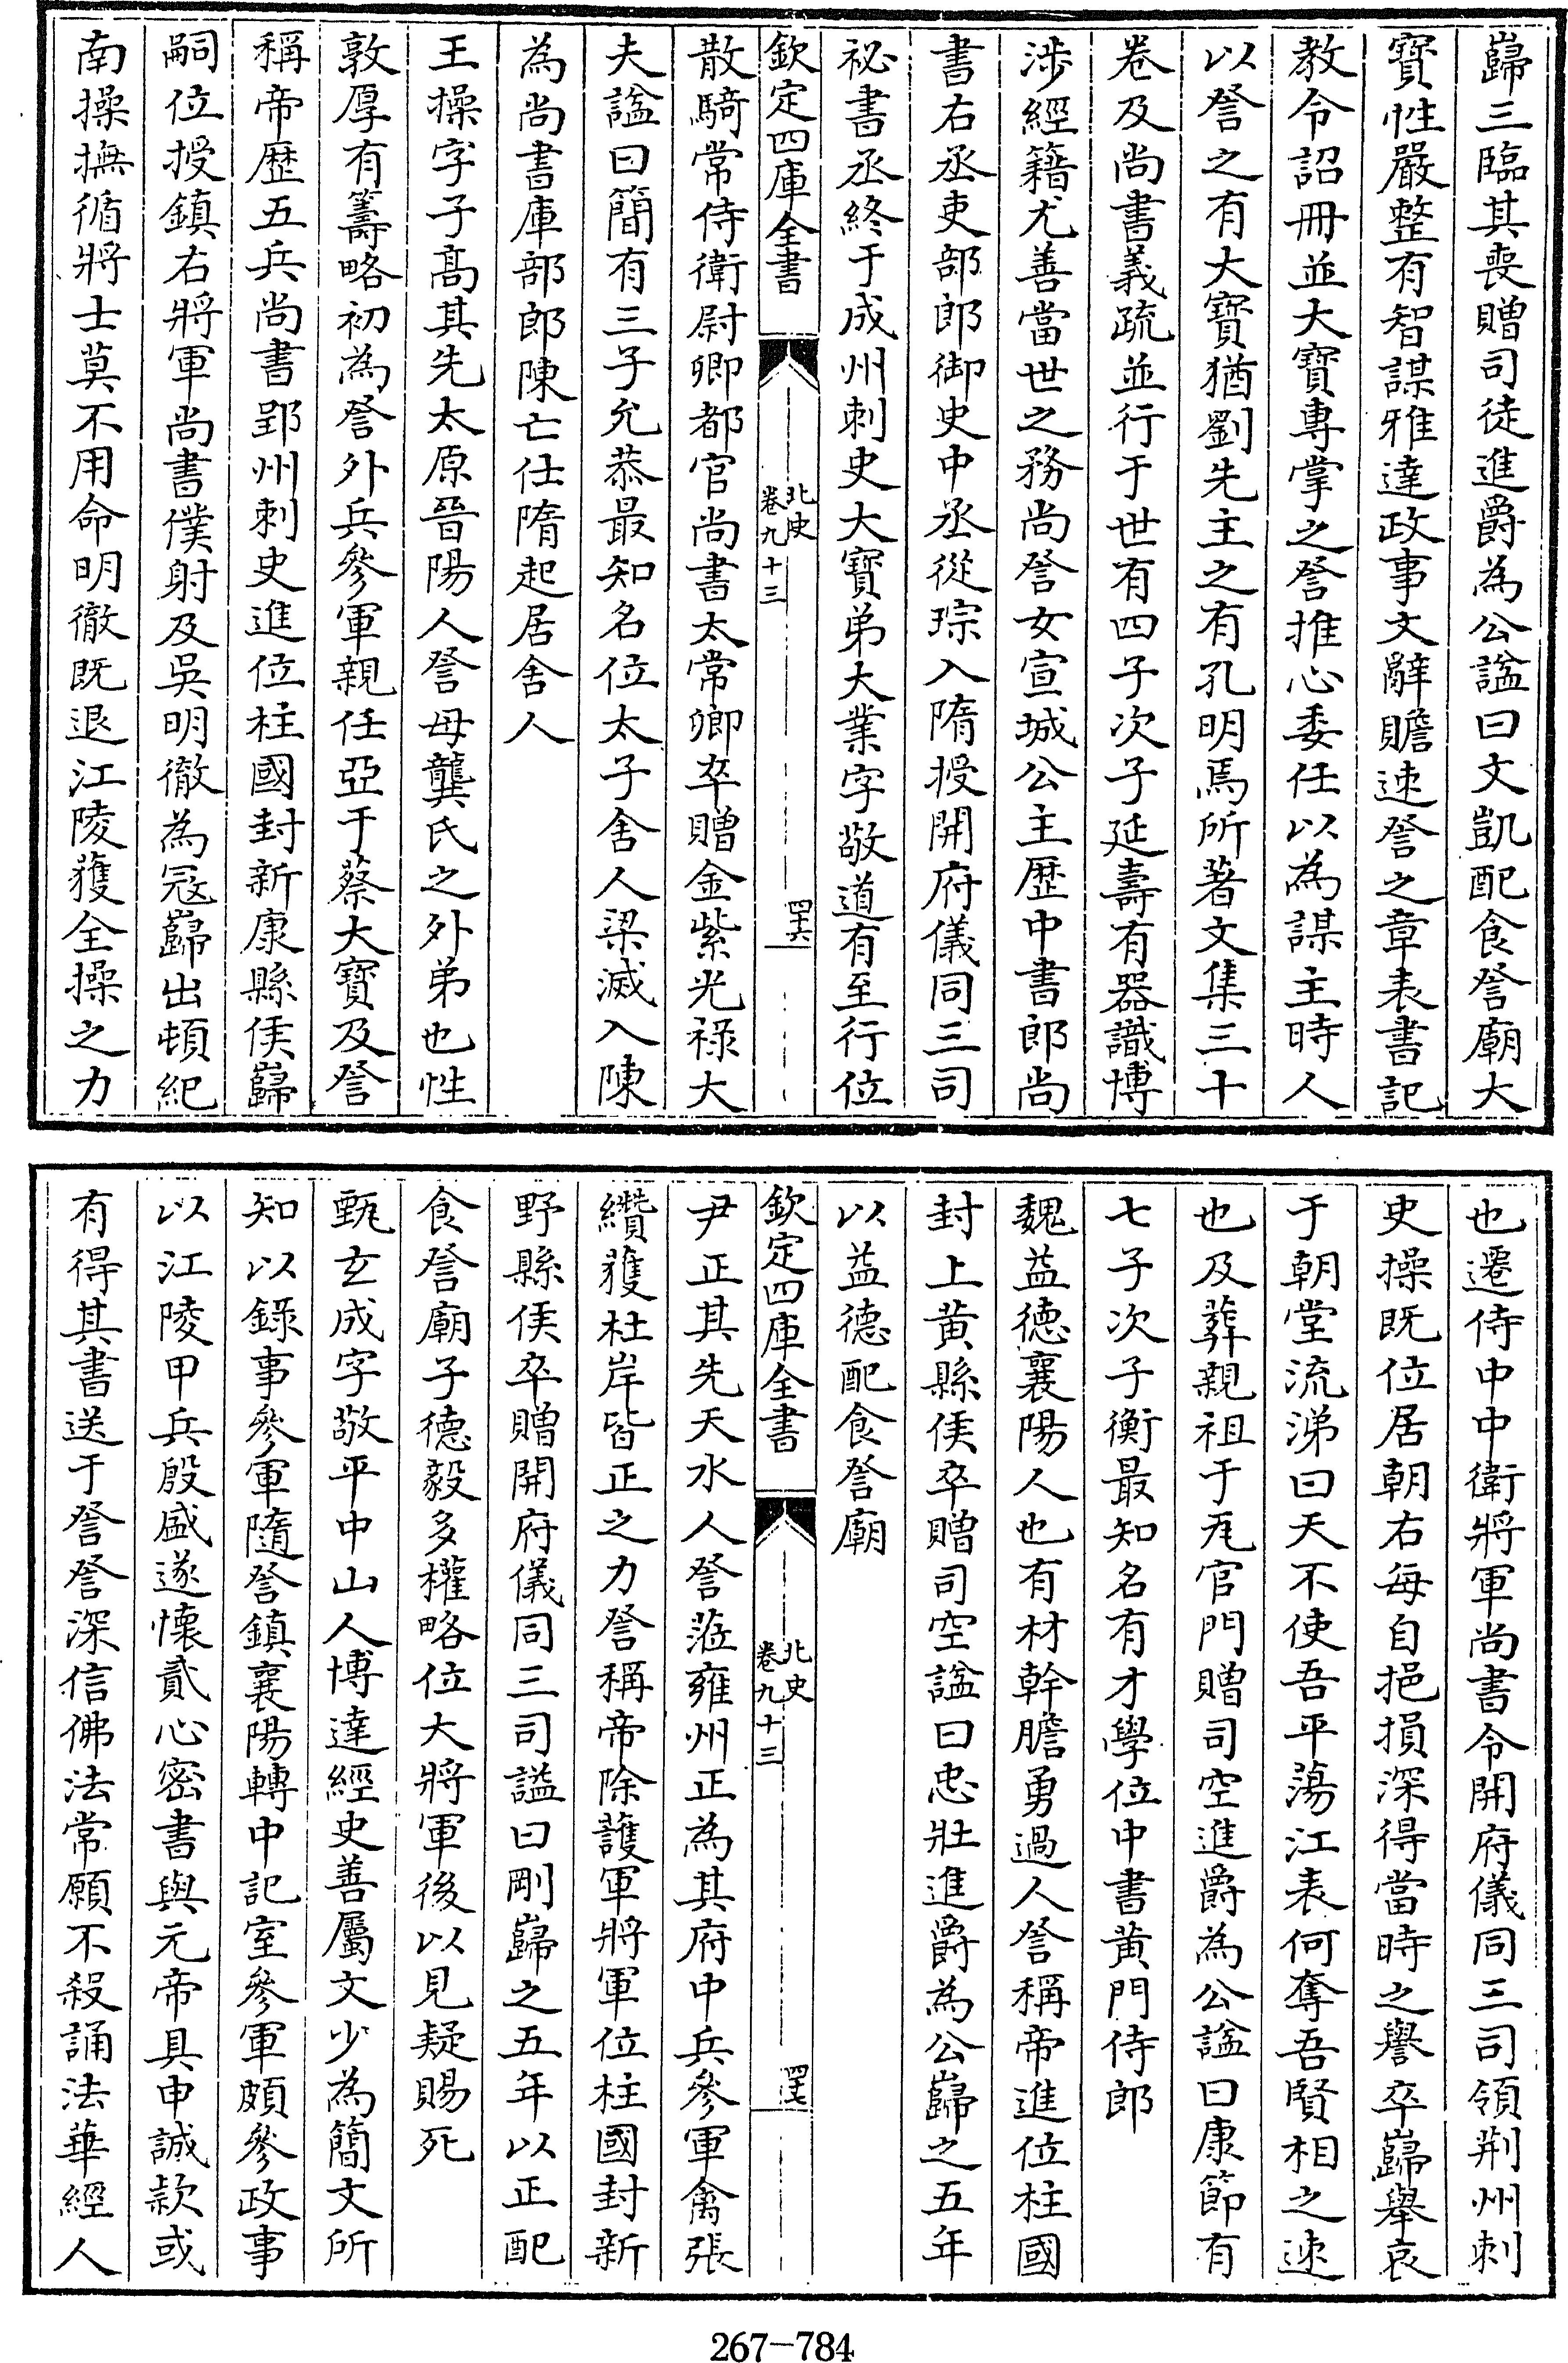 巋三臨其喪贈司徒進爵為公諡曰文凱配食詧廟大
寳性嚴整有智謀雅達政事文辭贍速詧之章表書記
教令詔冊並大寳專掌之詧推心委任以為謀主時人
以詧之有大寳猶劉先主之有孔明焉所著文集三十
卷及尚書義疏並行于世有四子次子延壽有器識博
涉經籍尤善當世之務尚詧女宣城公主歴中書郎尚
書右丞吏部郎御史中丞從琮入隋授開府儀同三司
祕書丞終于成州刺史大寳弟大業字敬道有至行位
欽定四庫全書
北史
卷九十三
四六
散騎常侍衛尉卿都官尚書太常卿卒贈金紫光禄大
夫諡曰簡有三子允恭最知名位太子舍人梁滅入陳
為尚書庫部郎陳亡仕隋起居舍人
王操字子高其先太原晉陽人詧母龔氏之外弟也性
敦厚有籌略初為詧外兵參軍親任亞于蔡大寳及詧
稱帝歴五兵尚書郢州刺史進位柱國封新康縣侯巋
嗣位授鎮右將軍尚書僕射及吳明徹為寇巋出頓紀
南操撫循將士莫不用命明徹既退江陵獲全操之力
也遷侍中中衛將軍尚書令開府儀同三司領荆州刺
史操既位居朝右每自挹損深得當時之譽卒巋舉哀
于朝堂流涕曰天不使吾平蕩江表何奪吾賢相之速
也及葬親祖于瓦官門贈司空進爵為公諡曰康節有
七子次子衡最知名有才學位中書黄門侍郎
魏益德襄陽人也有材幹膽勇過人詧稱帝進位柱國
封上黄縣侯卒贈司空諡曰忠壯進爵為公巋之五年
以益德配食詧廟
欽定四庫全書
北史
卷九十三
四七
尹正其先天水人詧蒞雍州正為其府中兵參軍禽張
纘獲杜岸皆正之力詧稱帝除護軍將軍位柱國封新
野縣侯卒贈開府儀同三司諡曰剛巋之五年以正配
食詧廟子德毅多權略位大將軍後以見疑賜死
甄玄成字敬平中山人博達經史善屬文少為簡文所
知以錄事參軍隨詧鎮襄陽轉中記室參軍頗參政事
以江陵甲兵殷盛遂懷貳心密書與元帝具申誠款或
有得其書送于詧詧深信佛法常願不殺誦法華經人
267-784